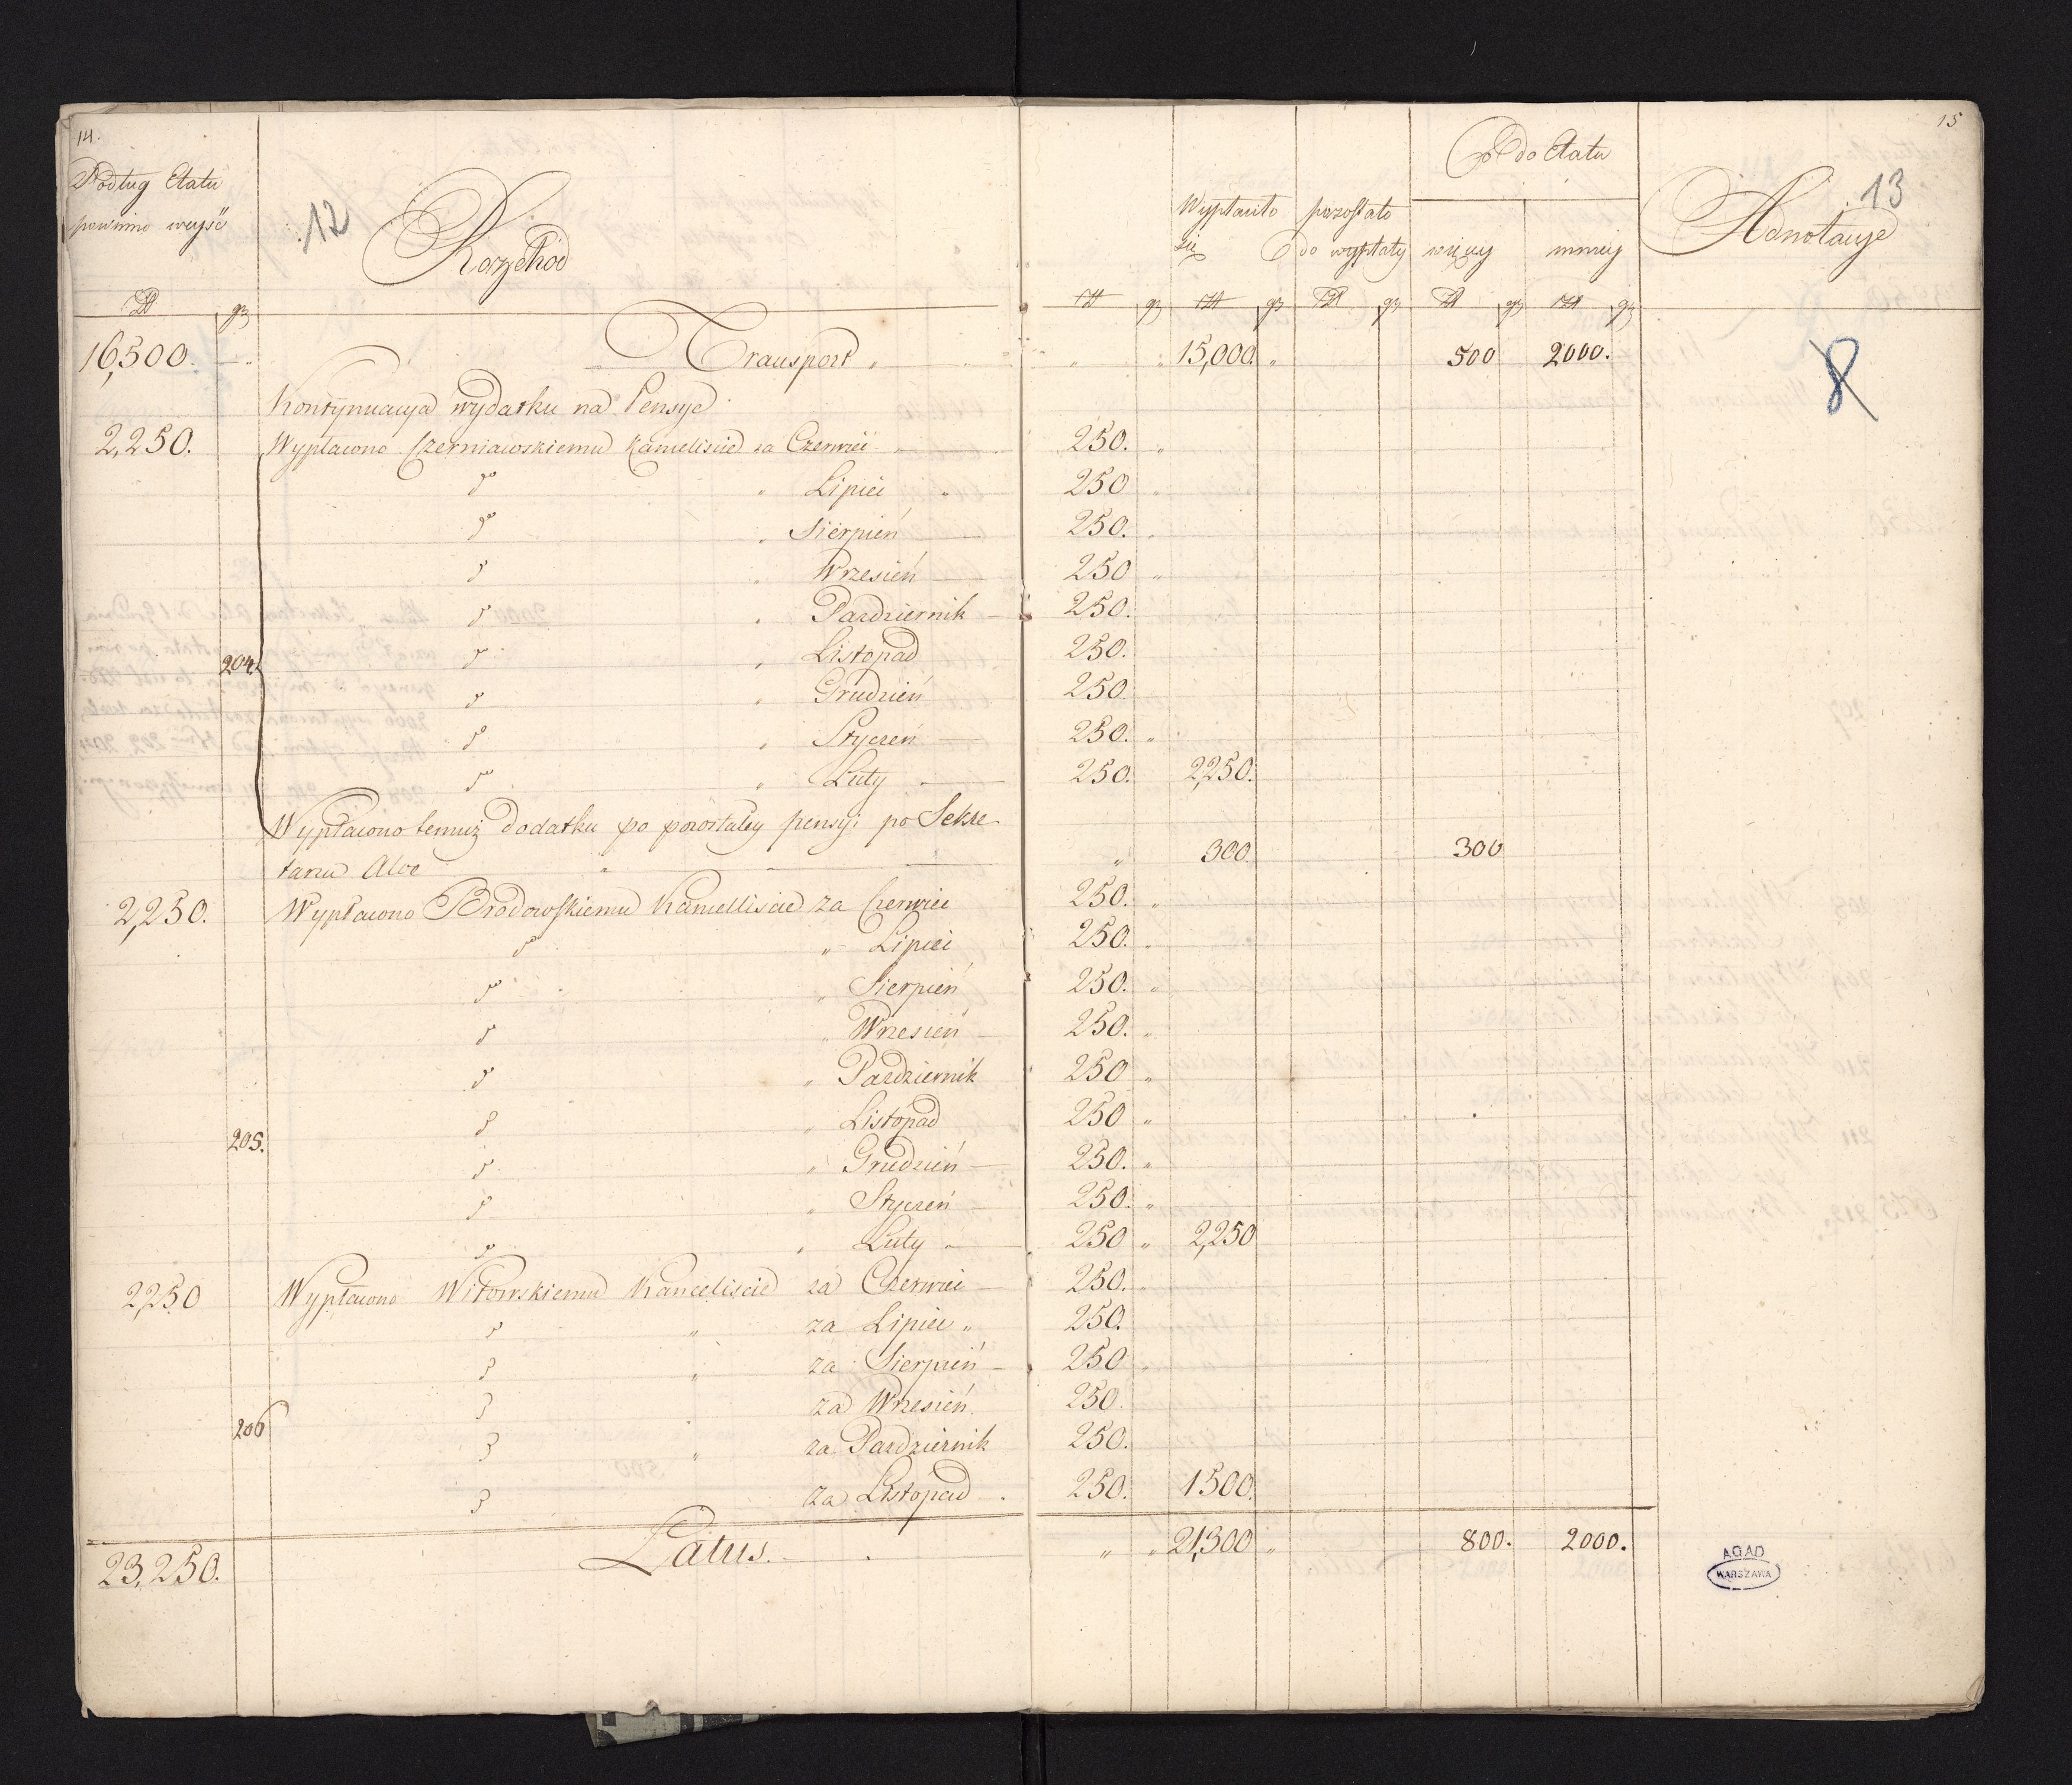 14. 15
Podług Etatu
powinno wyjść
12
Rozchód
Wypłaciło
się
pozostało
do wypłaty
Co do Etatu
więcej mniej
Adnotacye
13
Zł gr Zł gr Zł gr Zł gr Zł gr Zł gr
16,500. Transport „ „ „ 15,000. „ 500 2000.
8
Kontynuacya wydatku na Pensye
2,250. Wypłacono Czerniawskiemu Kancliscie za Czerwiec 250. „
do „ Lipiec „ 250 „
do „ Sierpień 250. „
do „ Wrzesień 250 „
do „ Pazdziernik 250.
204 do „ Listopad 250.
do „ Grudzień 250
do „ Styczeń 250. „
do „ Luty 250. 2,250.
Wypłacono temuż dodatku po pozostałey pensyi po Sekre-
tarzu Aloe „ 300. 300
2,250. Wypłacono Brodowskiemu Kancelliscie za Czerwiec 250. „
do „ Lipiec 250. „
do „ Sierpień 250. „
do „ Wrzesień 250. „
do „ Pazdziernik 250 „
205. do „ Listopad 250 „
do „ Grudzień 250. „
do „ Styczeń 250. „
do „ Luty 250 „ 2,250
2,250 Wypłacono Witowskiemu Kanceliscie za Czerwiec 250. „
do „ za Lipiec „ 250.
do „ za Sierpień 250 „
do za Wrzesień 250.
206 do „ za Pazdziernik 250.
do za Listopad 250. 1500.
23,250. Latus. „ „ 21,300 „ 800. 2000.
AGAD
WARSZAWA